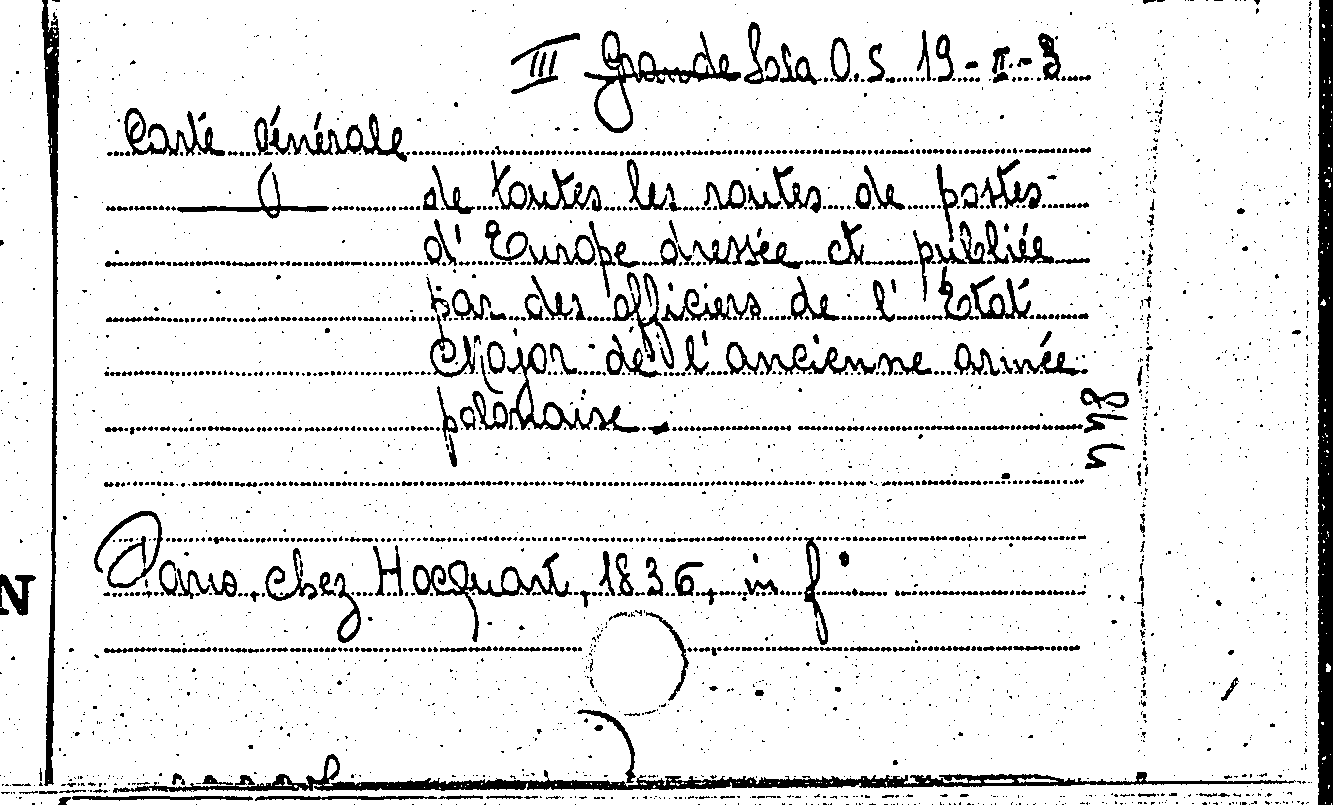 III Grande Sala O.S. 19-II-3
Carte générale
de toutes les routes de postes
d'Europe dressée et publiée
par des officiers de l'Etat
Major de l'ancienne armée
polonaise.
Paris, chez Hocquart, 1836, in f°
N